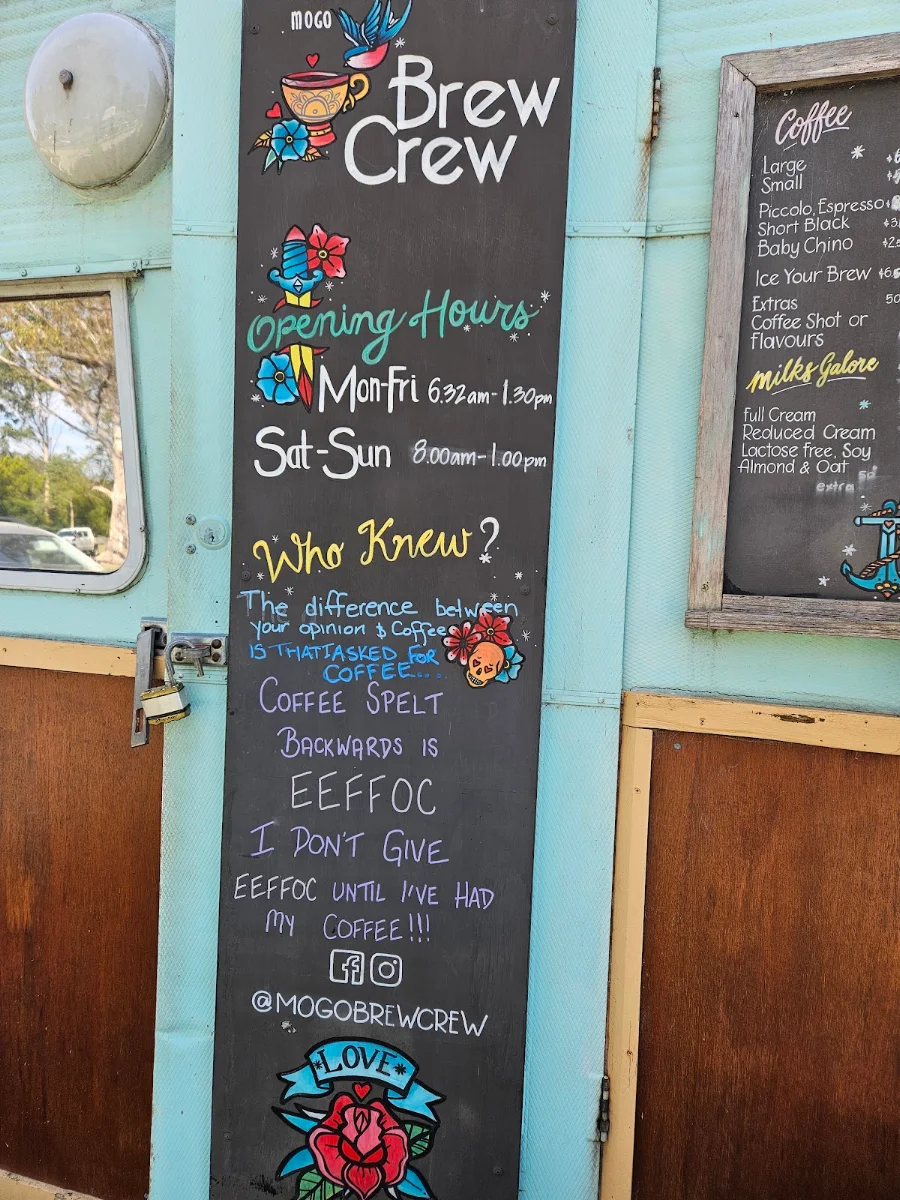 MOGO
Brew
Crew
Opening Hours
Mon-Fri 6.32am-1.30pm
Sat-Sun 8.00am-1.00pm
Who Knew?
The difference between
your opinion & Coffee
IS THAT I ASKED FOR
COFFEE....
COFFEE SPELT
BACKWARDS IS
EEFFOC
I DON'T GIVE
EEFFOC UNTIL I'VE HAD
MY COFFEE!!!
@MOGOBREWCREW
*LOVE*
Coffee
Large
Small
Piccolo, Espresso
Short Black
Baby Chino
Ice Your Brew
Extras
Coffee Shot or
Flavours
Milks Galore
Full Cream
Reduced Cream
Lactose Free, Soy
Almond & Oat
extra